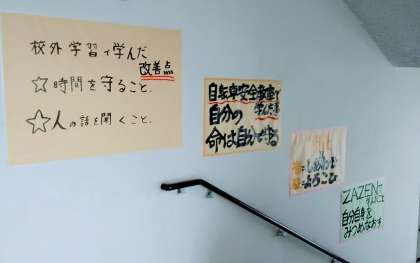 校外学習で学んだ
改善点
☆時間を守ること。
☆人の話を聞くこと。
自転車安全教室で
学んだ事
自分の
命は自分で守る
ZAZENで
自分自身を
みつめなおす